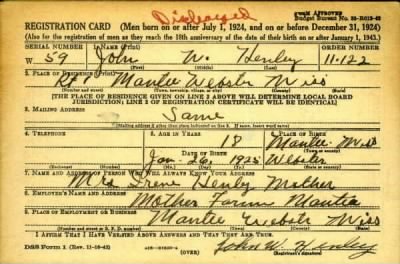 Discharged
FORM APPROVED
Budget Bureau No. 33-R012-42
REGISTRATION CARD (Men born on or after July 1, 1924, and on or before December 31, 1924)
(Also for the registration of men as they reach the 18th anniversary of the date of their birth on or after January 1, 1943.)
SERIAL NUMBER 1. NAME (Print) ORDER NUMBER
W 59 John W. Henley 11-122
2. PLACE OF RESIDENCE (Print)
Rt 1 Mantee Webster Miss
[THE PLACE OF RESIDENCE GIVEN ON LINE 2 ABOVE WILL DETERMINE LOCAL BOARD
JURISDICTION; LINE 2 OF REGISTRATION CERTIFICATE WILL BE IDENTICAL]
3. MAILING ADDRESS
Same
[Mailing address if other than place indicated on line 2. If same, insert word same]
4. TELEPHONE 5. AGE IN YEARS 6. PLACE OF BIRTH
18 Mantee Miss
DATE OF BIRTH (Town or county)
Jan. 26, 1925 Webster
(Exchange) (Number) (Mo.) (Day) (Yr.) (State or country)
7. NAME AND ADDRESS OF PERSON WHO WILL ALWAYS KNOW YOUR ADDRESS
Mrs Irene Henly Mother
8. EMPLOYER'S NAME AND ADDRESS
Mother Farm Mantee
9. PLACE OF EMPLOYMENT OR BUSINESS
Mantee Webster Miss
(Number and street or R. F. D. number) (Town) (County) (State)
I AFFIRM THAT I HAVE VERIFIED ABOVE ANSWERS AND THAT THEY ARE TRUE.
DSS Form 1 (Rev. 11-16-42) (OVER) John W. Henley